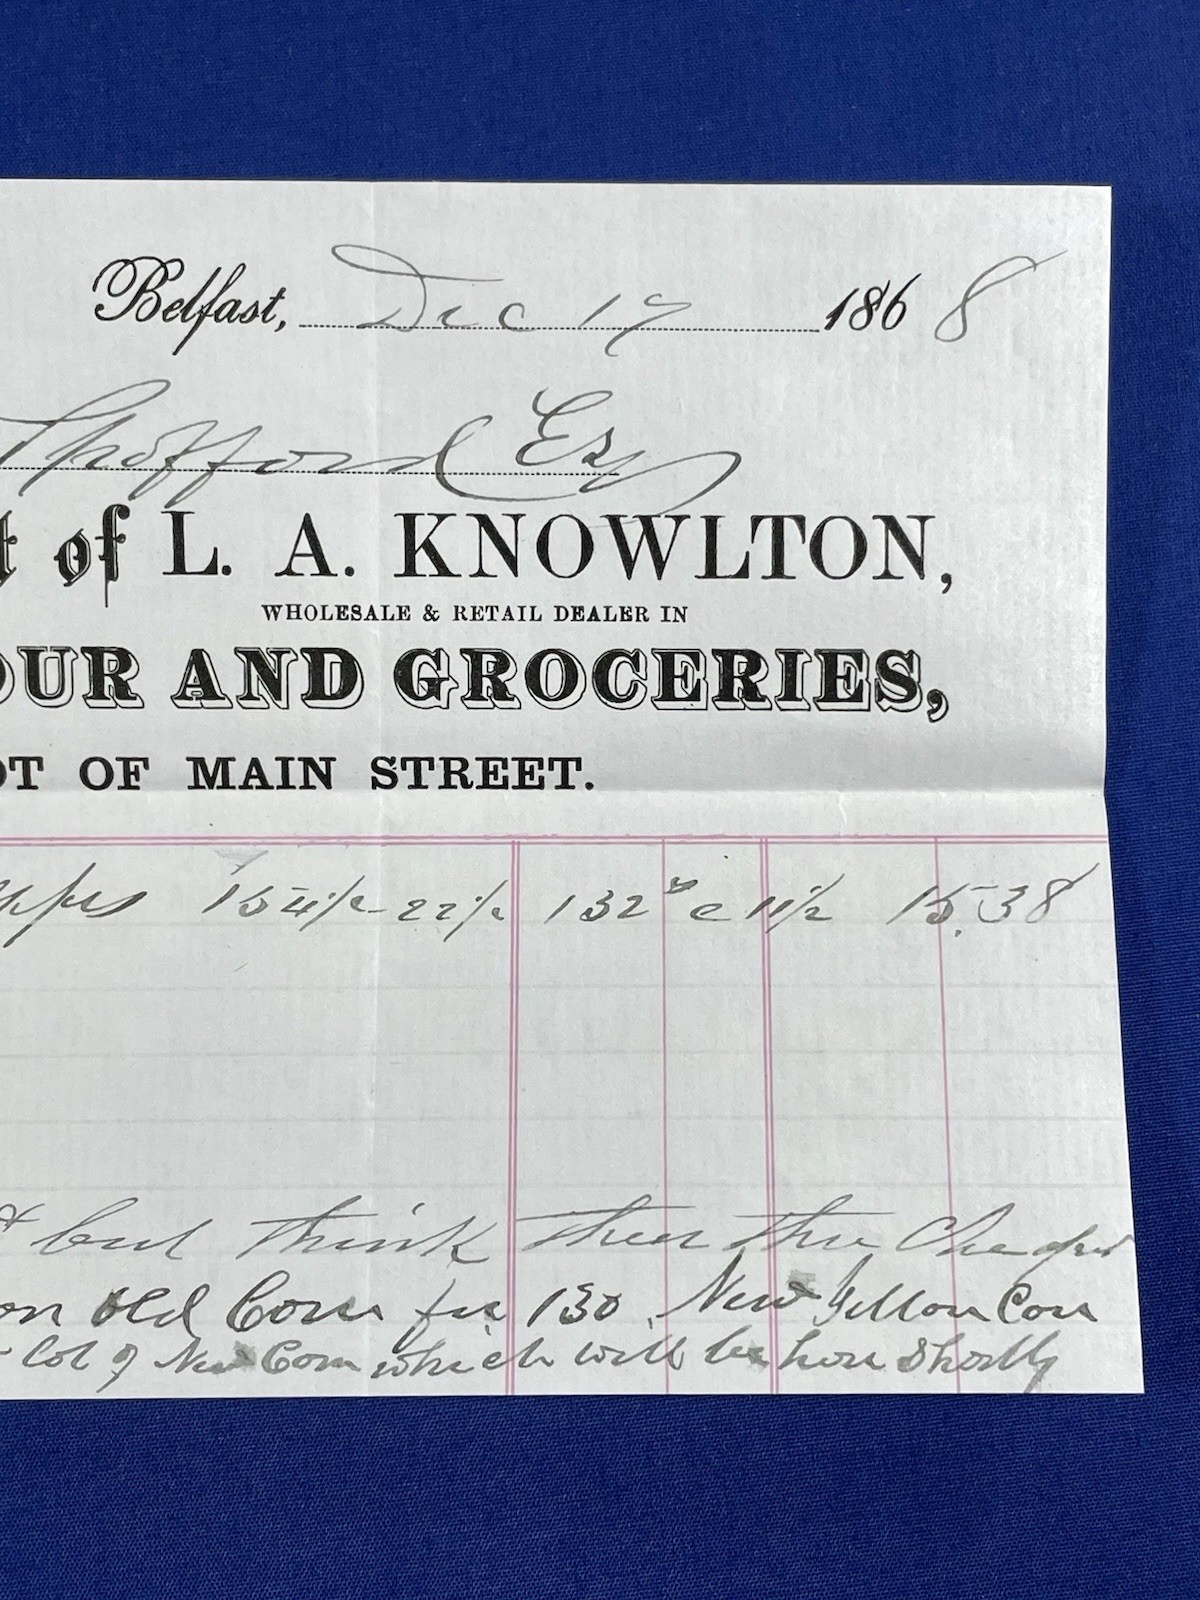 Belfast, Dec 17 1868
Spofford Esq
t of L. A. KNOWLTON,
WHOLESALE & RETAIL DEALER IN
OUR AND GROCERIES,
OT OF MAIN STREET.
154 1/2 - 22 1/2 132 @ 11 1/2 15.38
but think the
on old Corn for 130. New Yellow Corn
lot of New Corn which will be here Shortly